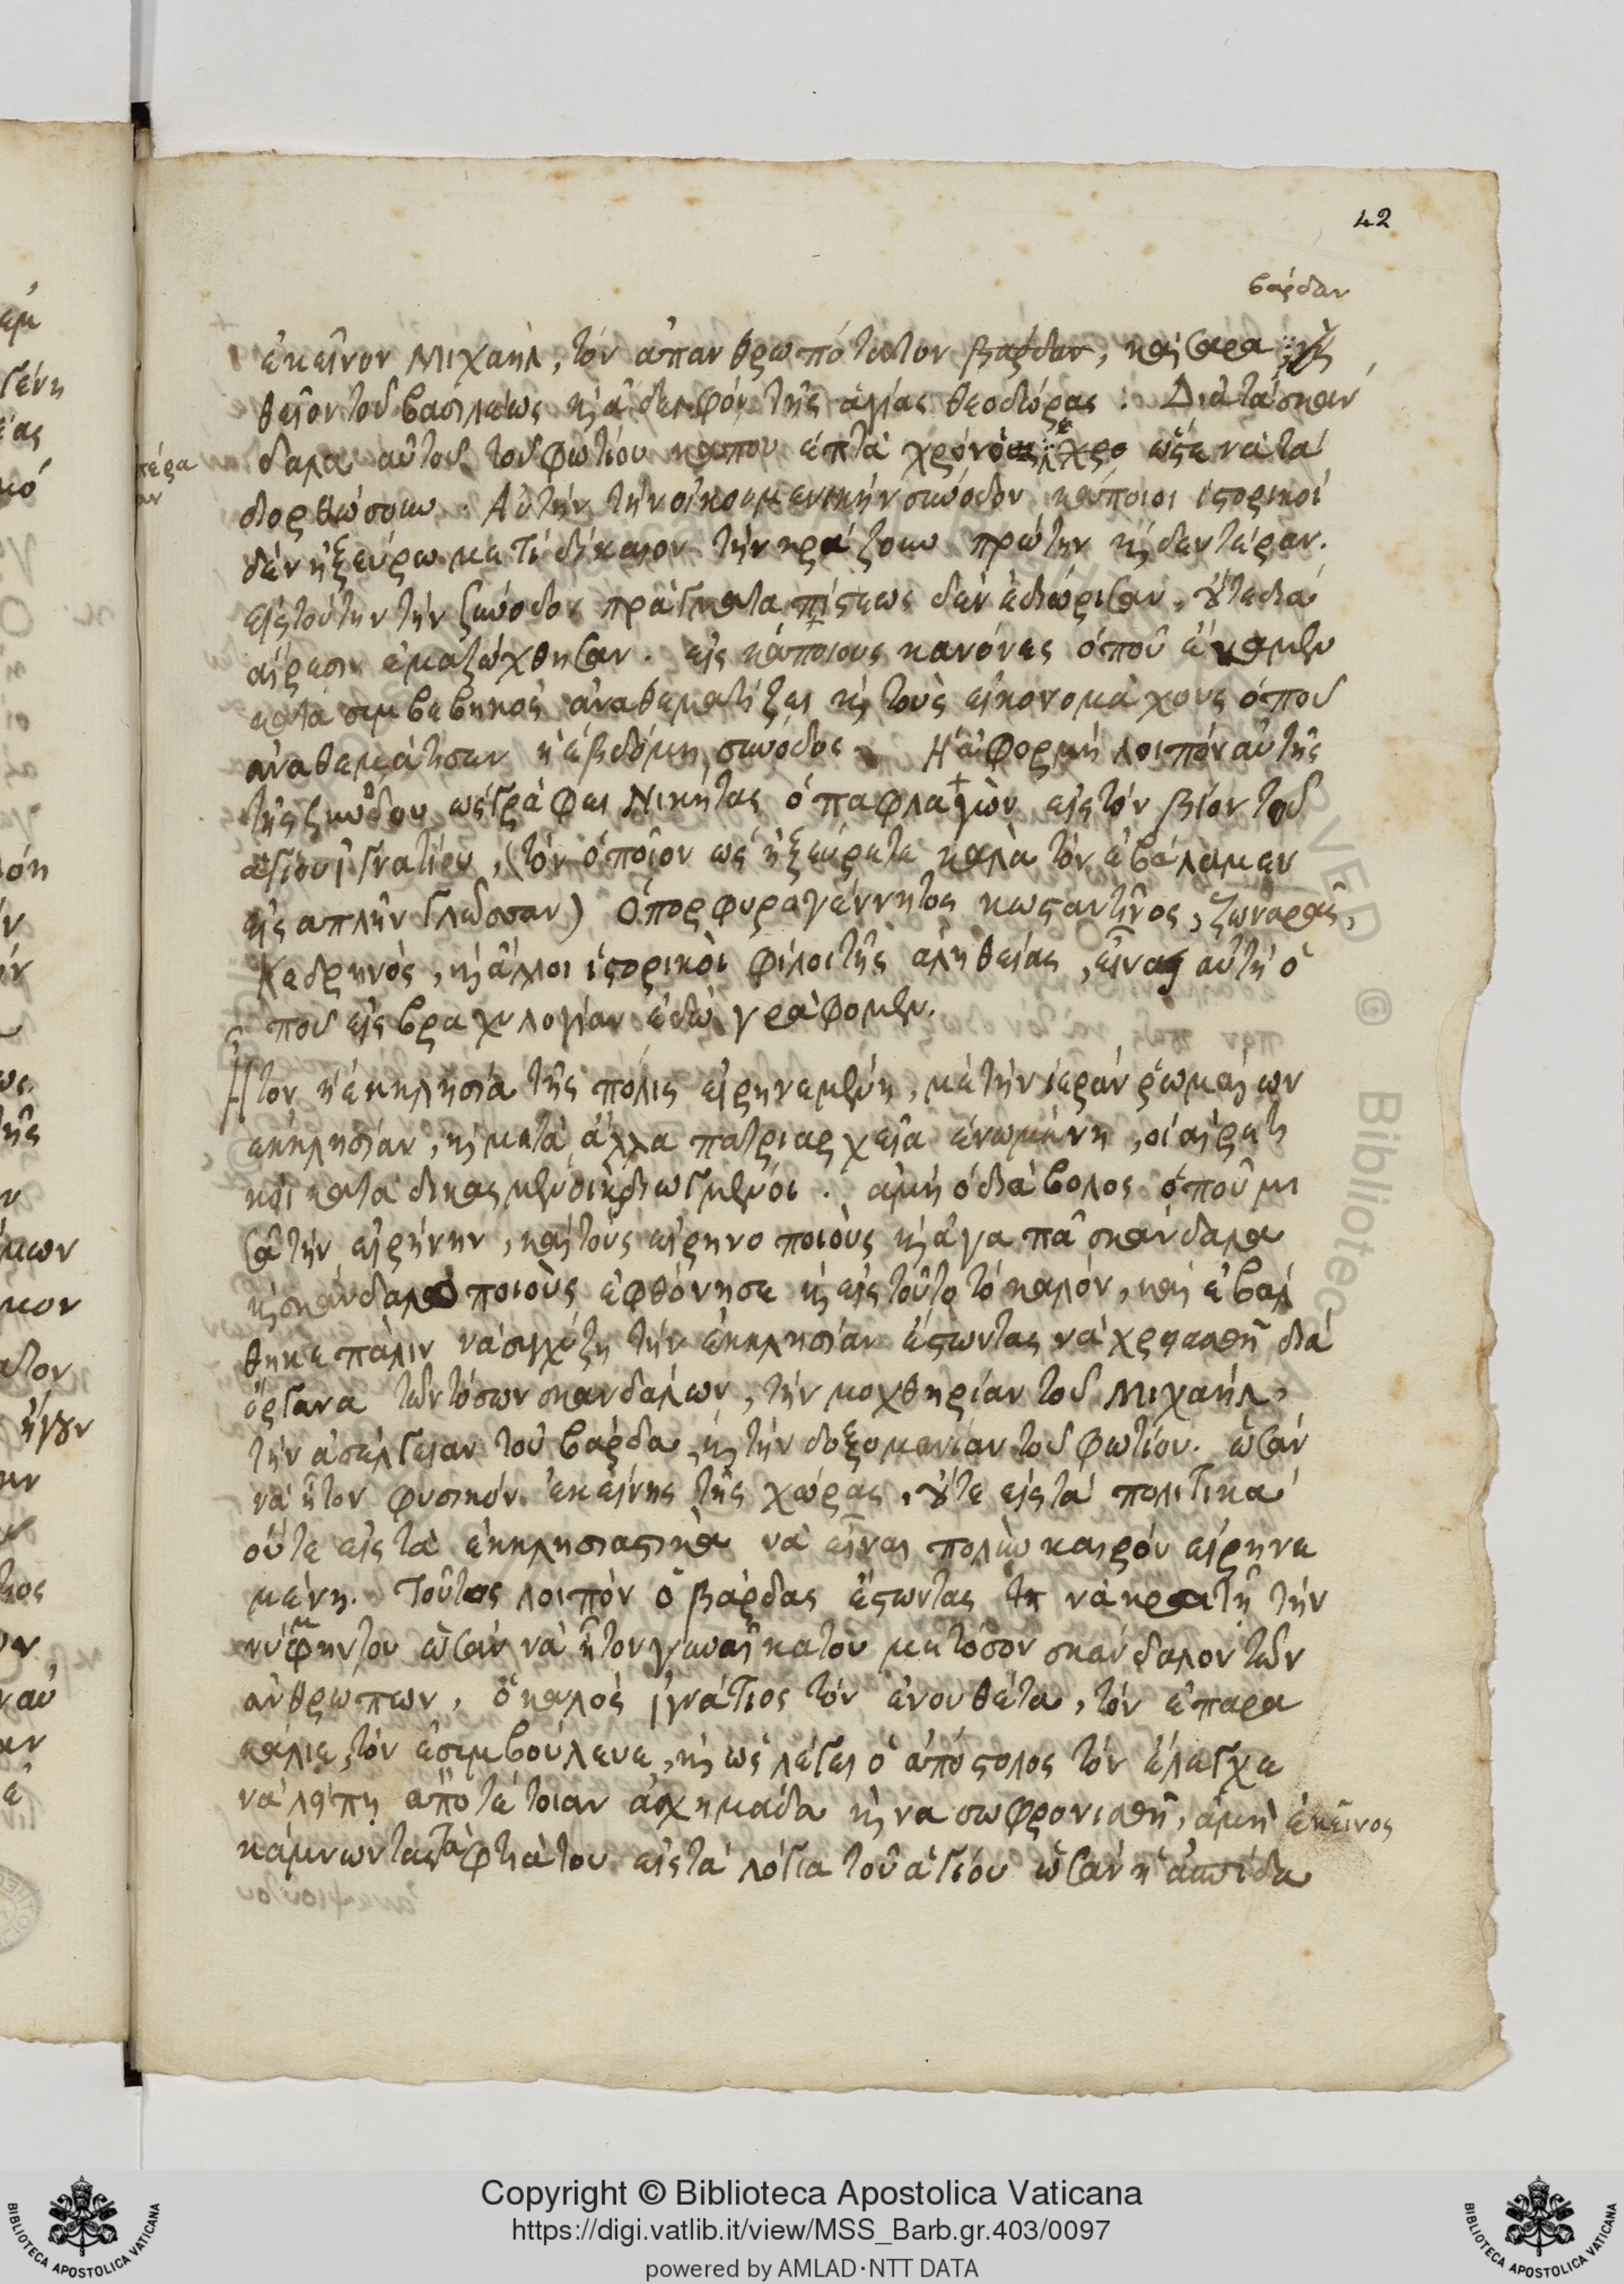 42
βάρδαν
ἐκεῖνον Μιχαήλ, τὸν ἀπανθρωπότατον βάρδαν, καίσαρα
θεῖον τοῦ βασιλέως κὶ ἀδελφὸν τῆς ἁγίας θεοδώρας. Διατὰ σκάν
δαλα αὐτοῦ τοῦ φωτίου κάπου ἑπτὰ χρόνους ὥστε νὰ τὰ
διορθώσουν. Αὐτὴν τὴν οἰκουμενικὴν σύνοδον κάποιοι ἱστορικοὶ
δὲν ἠξεύρω με τί δίκαιον τὴν κράζουν πρώτην κὶ δευτέραν.
εἰς τούτην τὴν σύνοδον πράγματα πίστεως δὲν ἐδιώρισαν, οὔτε διὰ
αἵρεσιν ἐμαζώχθησαν. εἰς κάποιους κανόνες ὁποῦ ἔκαμεν
κατὰ συμβεβηκὸς ἀναθεματίζει κὶ τοὺς εἰκονομάχους ὁποῦ
ἀναθεμάτισεν ἡ ἑβδόμη σύνοδος. Ἡ ἀφορμὴ λοιπὸν αὐτῆς
τῆς συνόδου ὡς γράφει Νικήτας ὁ παφλαγὼν εἰς τὸν βίον τοῦ
ἁγίου ἰγνατίου, (τὸν ὁποῖον ὡς ἠξεύρετε καλὰ τὸν ἐβάλαμεν
εἰς ἁπλὴν γλῶσσαν) Ὁ πορφυραγέννητος κωσταντῖνος, ζωναρᾶς,
Κεδρηνὸς, κὶ ἄλλοι ἱστορικοὶ φίλοι τῆς ἀληθείας, εἶναι αὐτὴ ὁ
ποῦ εἰς βραχυλογίαν ἐδῶ γράφομεν.
Ἦτον ἡ ἐκκλησία τῆς πόλις εἰρηνεμένη, μὲ τὴν ἱερὰν ῥωμαίων
ἐκκλησίαν, κὶ μετὰ ἄλλα πατριαρχεῖα ἑνωμένη, οἱ αἱρετι
κοὶ καταδικασμένοι κὶ διωγμένοι. ἀμὴ ὁ διάβολος ὁποῦ μι
σᾶ τὴν εἰρήνην, καὶ τοὺς εἰρηνοποιοὺς κὶ ἀγαπᾶ σκάνδαλα
κὶ σκανδαλοποιοὺς ἐφθόνησε κὶ εἰς τοῦτο τὸ καλόν, καὶ ἐβάλ
θηκε πάλιν νὰ συγχύζη τὴν ἐκκλησίαν ἔστωντας νὰ χρειασθῆ διὰ
ὄργανα τῶν τόσων σκανδάλων, τὴν μοχθηρίαν τοῦ Μιχαήλ,
τὴν ἀσέλγειαν τοῦ βάρδα, κὶ τὴν δοξομανίαν τοῦ φωτίου. ὡσὰν
νὰ ἦτον φυσικόν ἐκείνης τῆς χώρας, οὔτε εἰς τὰ πολιτικὰ
οὔτε εἰς τὰ ἐκκλησιαστικὰ νὰ εἶναι πολὺν καιρόν εἰρηνε
μένη. Τοῦτος λοιπὸν ὁ βάρδας ἔστωντας νὰ κρατῆ τὴν
νύφην του ὡσὰν νὰ ἦτον γυναῖκα του με τόσον σκάνδαλον τῶν
ἀνθρώπων, ὁ καλὸς ἰγνάτιος τὸν ἐνουθέτα, τὸν ἐπαρα
κάλιε, τὸν ἐσυμβούλευε, κὶ ὡς λέγει ὁ ἀπόστολος τὸν ἔλεγχε
νὰ λείπη ἀπὸ τέτοιαν ἀσχημάδα κὶ νὰ σωφρονισθῆ, ἀμὴ ἐκεῖνος
κάμνωντας τὰ φτιά του εἰς τὰ λόγια τοῦ ἁγίου ὡσὰν ἡ ἀσπίδα
Copyright © Biblioteca Apostolica Vaticana
https://digi.vatlib.it/view/MSS_Barb.gr.403/0097
powered by AMLAD·NTT DATA